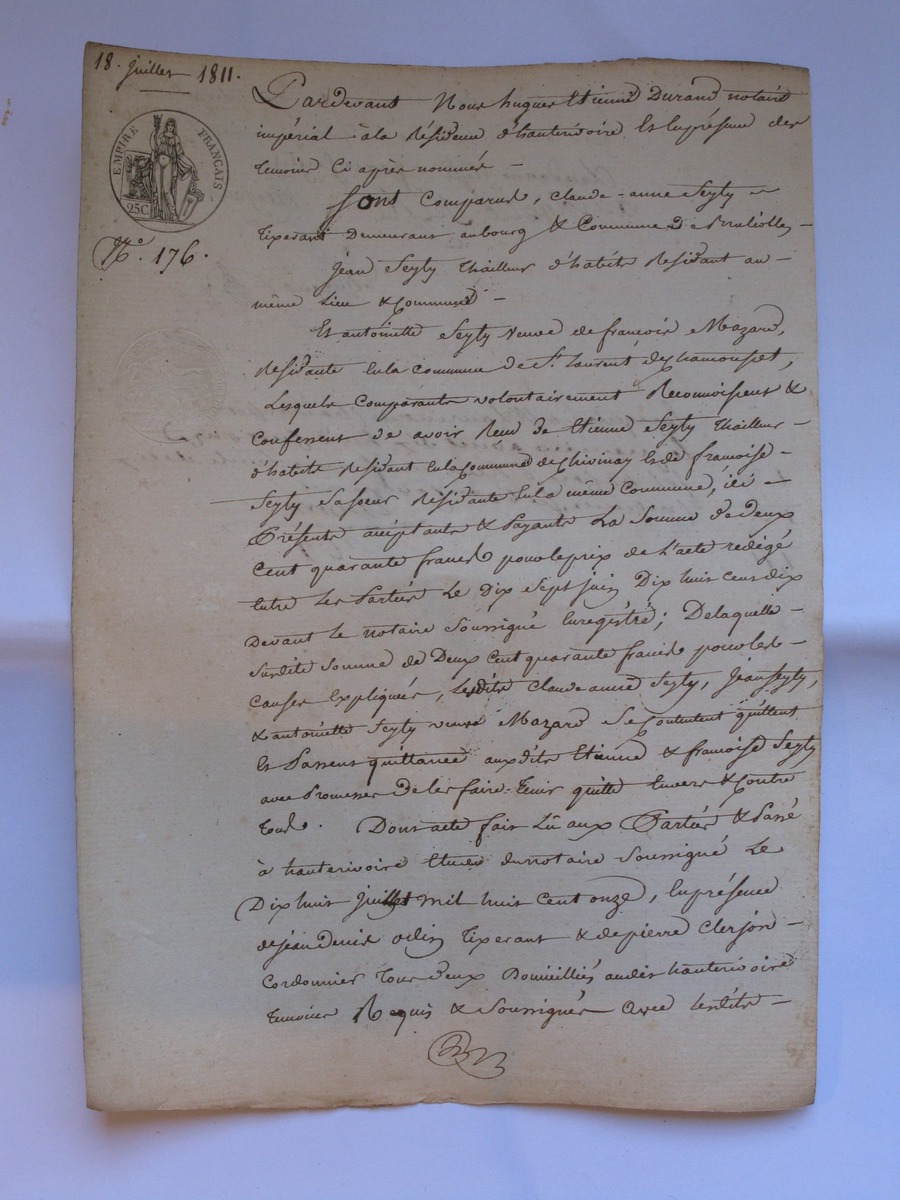 18. juillet 1811.
EMPIRE FRANÇAIS
25C
N.° 176.
Pardevant Nous hugues Etienne Durand notaire
impérial à la Résidence d'hauterivoire Et En présence des
temoins Ci après nommés —
Sont Comparus, Claude-anne Seyty —
tixerant Demeurant au bourg & Commune de Brulioles, —
Jean Seyty thailleur d'habits Résidant au —
même Lieu & Commune —
Et antoinette Seyty veuve de françois Mazard,
Résidante En la commune de St. laurent de Chamousset,
Lesquels Comparants volontairement Reconnoissent &
Confessent de avoir Reçu de Etienne Seyty thailleur —
d'habits Résidant En la Commune de Chivinay Et de françoise —
Seyty Sa sœur Résidante En la même Commune, ici —
Présents acceptants & Payants La Somme de deux
Cent quarante francs pour le prix de l'acte redigé
Entre les Parties Le Dix Sept juin Dix huit cent dix
Devant le notaire Soussigné Enregistré; De laquelle —
Surdite Somme de Deux Cent quarante francs pour les —
Causes Expliquées, lesdits Claude anne Seyty, Jean Seyty,
& antoinette Seyty veuve Mazard Se Contentent quittent
Et Passent quittance auxdits Etienne & françoise Seyty
avec Promesse De les faire tenir quitte Envers & Contre
tous. Dont acte fait Lû aux Parties & Passé
à hauterivoire Etude du notaire Soussigné Le
Dix huit Juillet mil huit Cent onze, En présence
de jean Denis odin tixerant & de pierre Clerjon —
Cordonnier tous deux Domiciliés audit hauterivoire
temoins Requis & Soussignés avec lesdits —